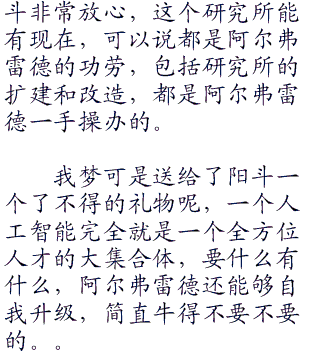 斗非常放心，这个研究所能
有现在，可以说都是阿尔弗
雷德的功劳，包括研究所的
扩建和改造，都是阿尔弗雷
德一手操办的。
我梦可是送给了阳斗一
个了不得的礼物呢，一个人
工智能完全就是一个全方位
人才的大集合体，要什么有
什么，阿尔弗雷德还能够自
我升级，简直牛得不要不要
的。。